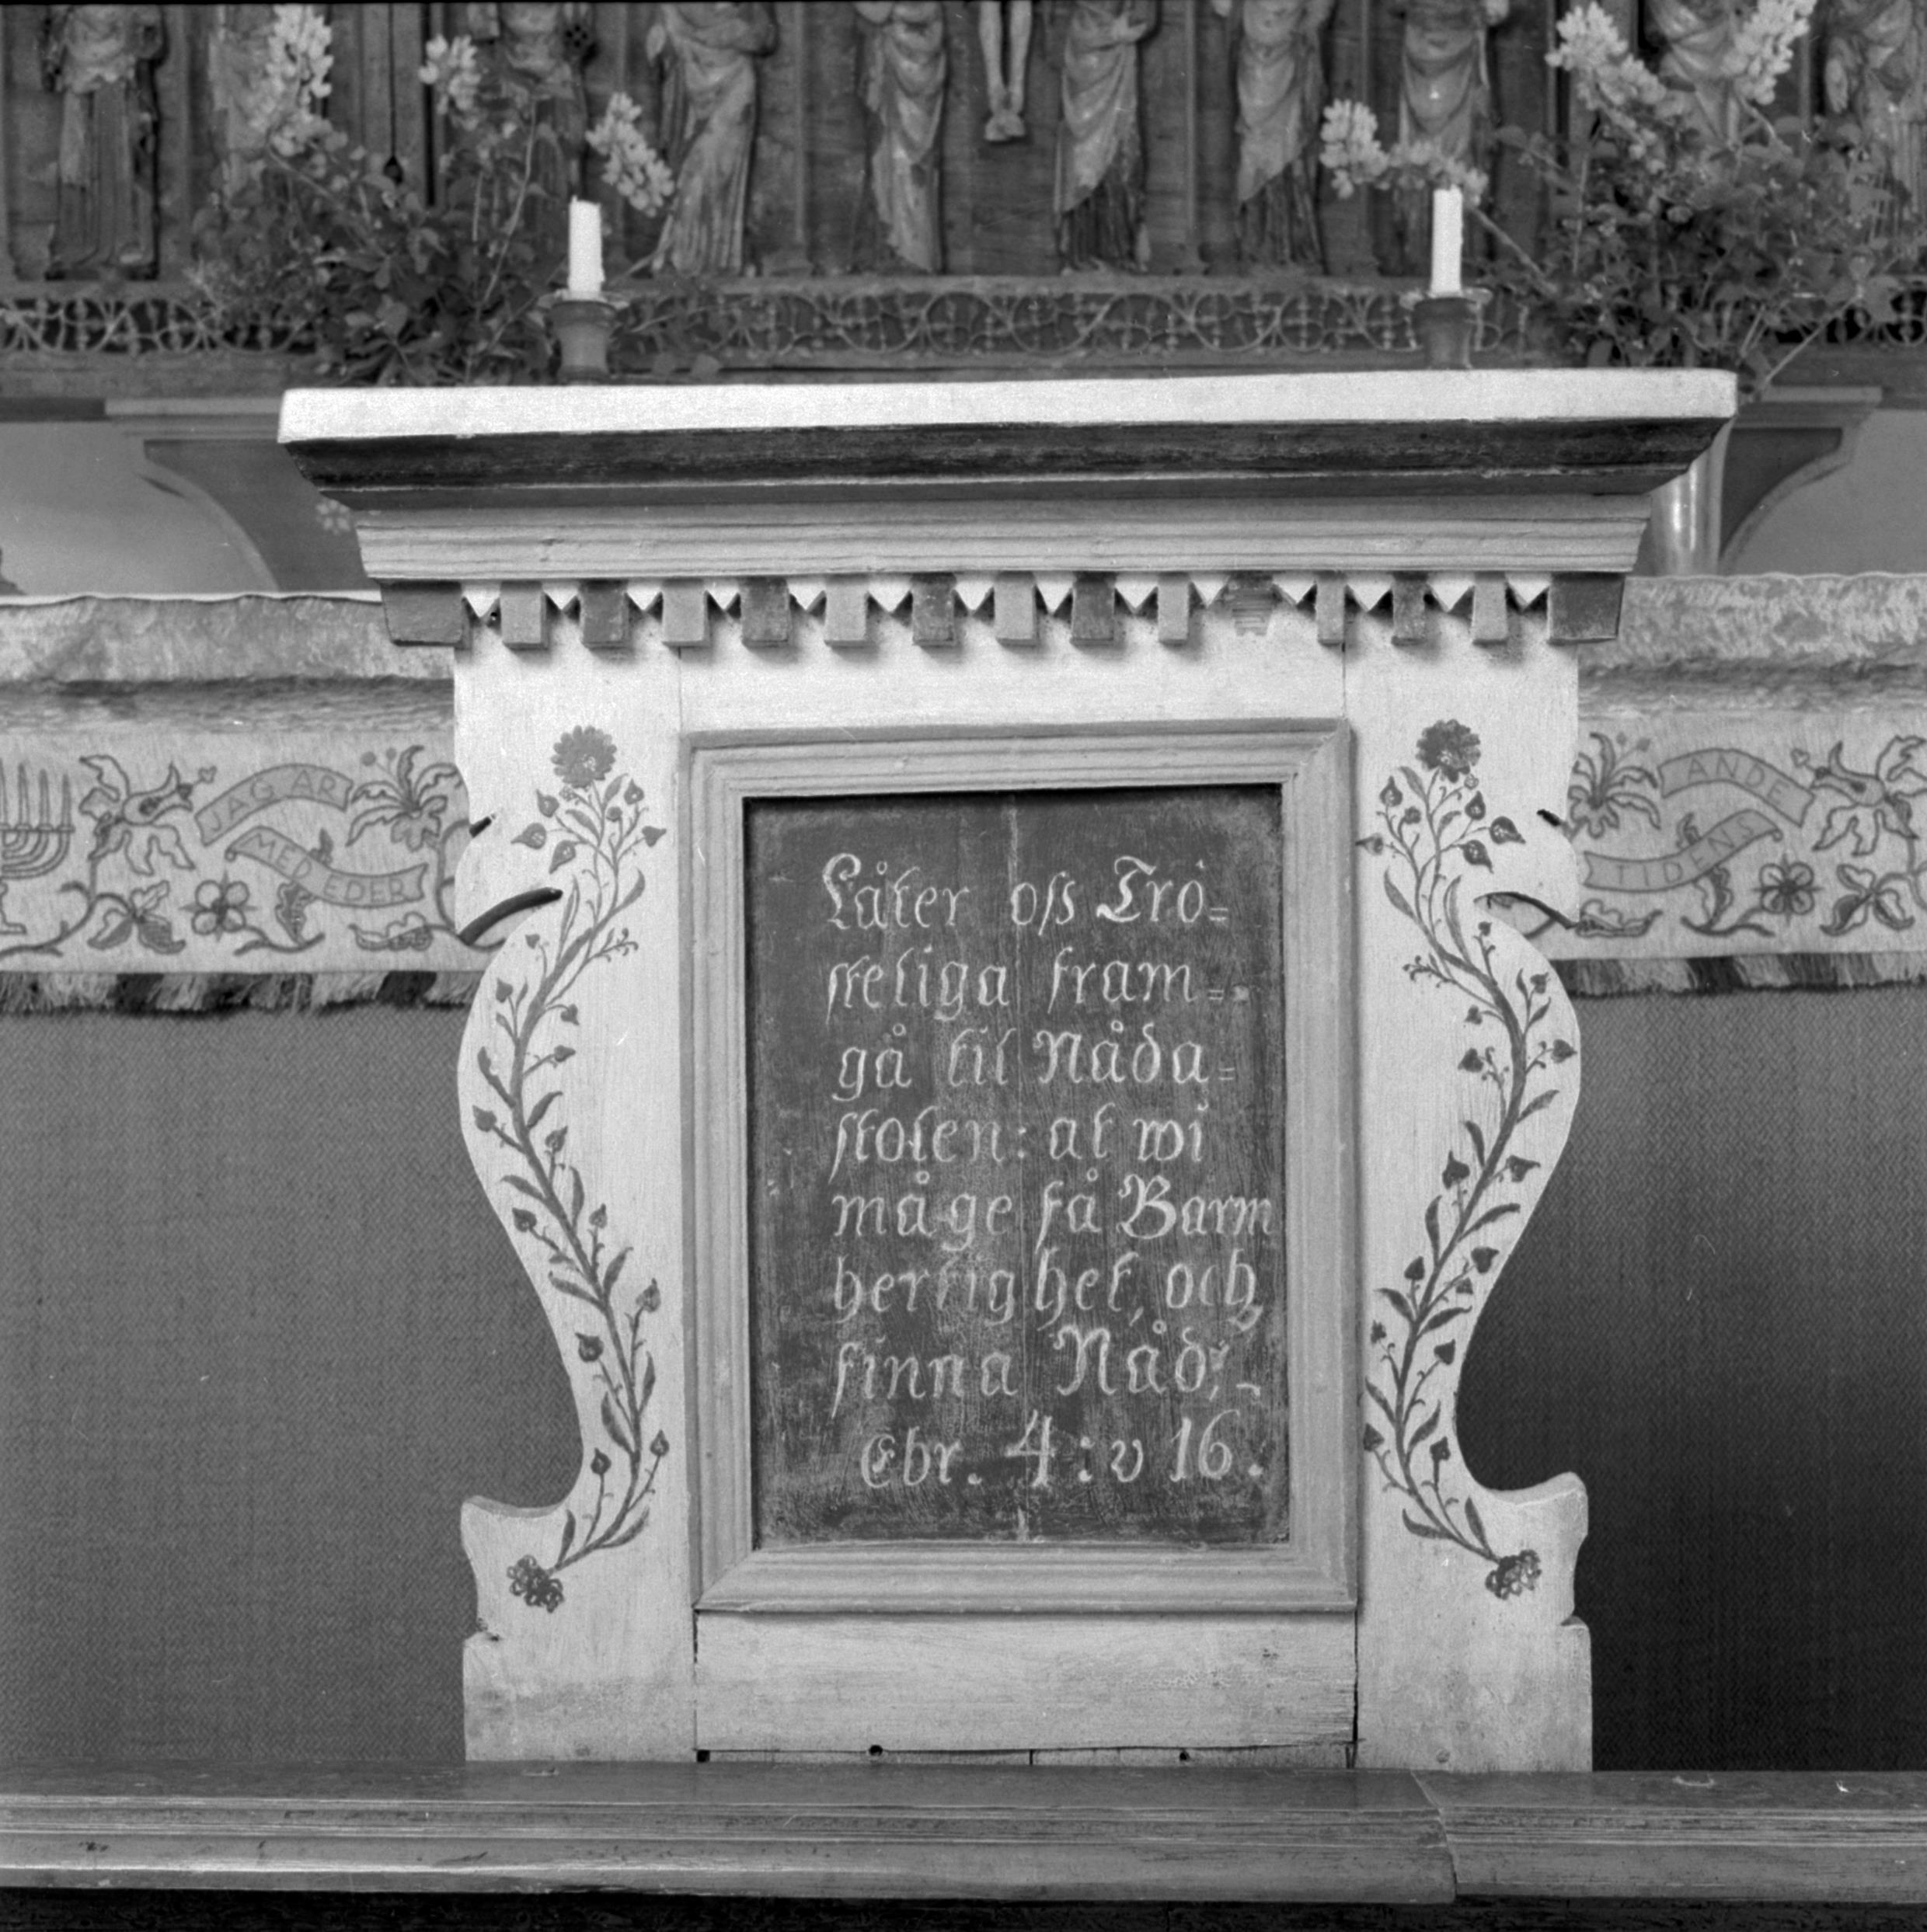 JAG ÄR
MED EDER
ANDE
TIDENS
Låter oss Trö=
steliga fram=
gå til Nåda=
stolen: at wi
måge få Barm
hertighet, och
finna Nåd,
Ebr. 4: v 16.